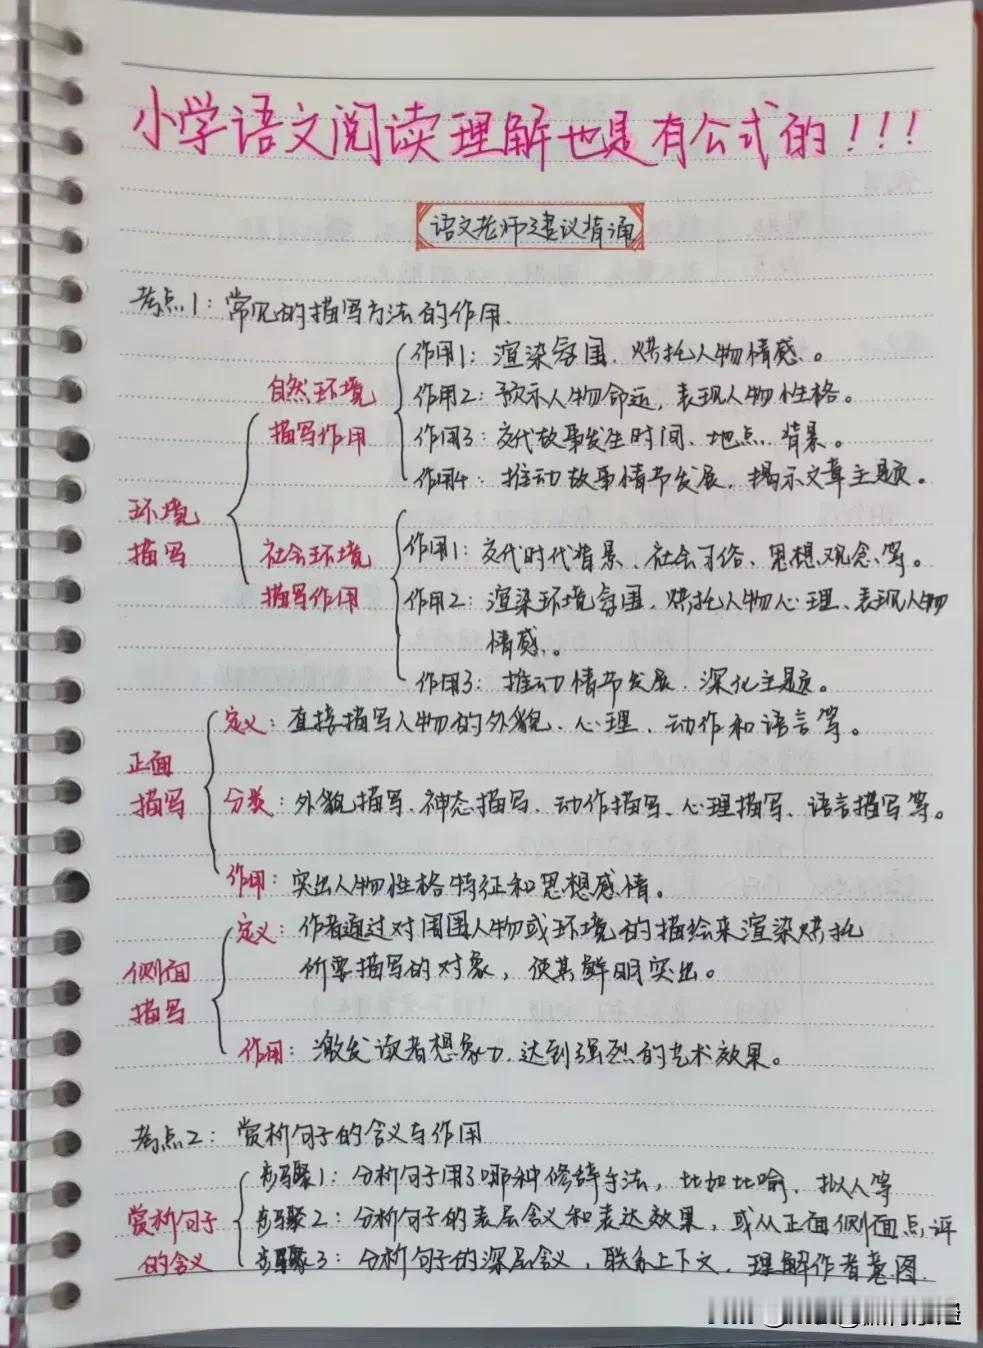 小学语文阅读理解也是有公式的！！！
语文老师建议背诵
考点1：常见的描写方法的作用.
自然环境
描写作用
作用1：渲染氛围、烘托人物情感。
作用2：预示人物命运，表现人物性格。
作用3：交代故事发生时间、地点、背景。
作用4：推动故事情节发展，揭示文章主题。
环境
描写
社会环境
描写作用
作用1：交代时代背景、社会习俗、思想观念等。
作用2：渲染环境氛围、烘托人物心理、表现人物
情感。
作用3：推动情节发展、深化主题。
正面
描写
定义：直接描写人物的外貌、心理、动作和语言等。
分类：外貌描写、神态描写、动作描写、心理描写、语言描写等。
作用：突出人物性格特征和思想感情。
侧面
描写
定义：作者通过对周围人物或环境的描绘来渲染烘托
所要描写的对象，使其鲜明突出。
作用：激发读者想象力、达到强烈的艺术效果。
考点2：赏析句子的含义与作用
赏析句子
的含义
步骤1：分析句子用了哪种修辞手法，比如比喻、拟人等
步骤2：分析句子的表层含义和表达效果，或从正面侧面点评
步骤3：分析句子的深层含义，联系上下文，理解作者意图.